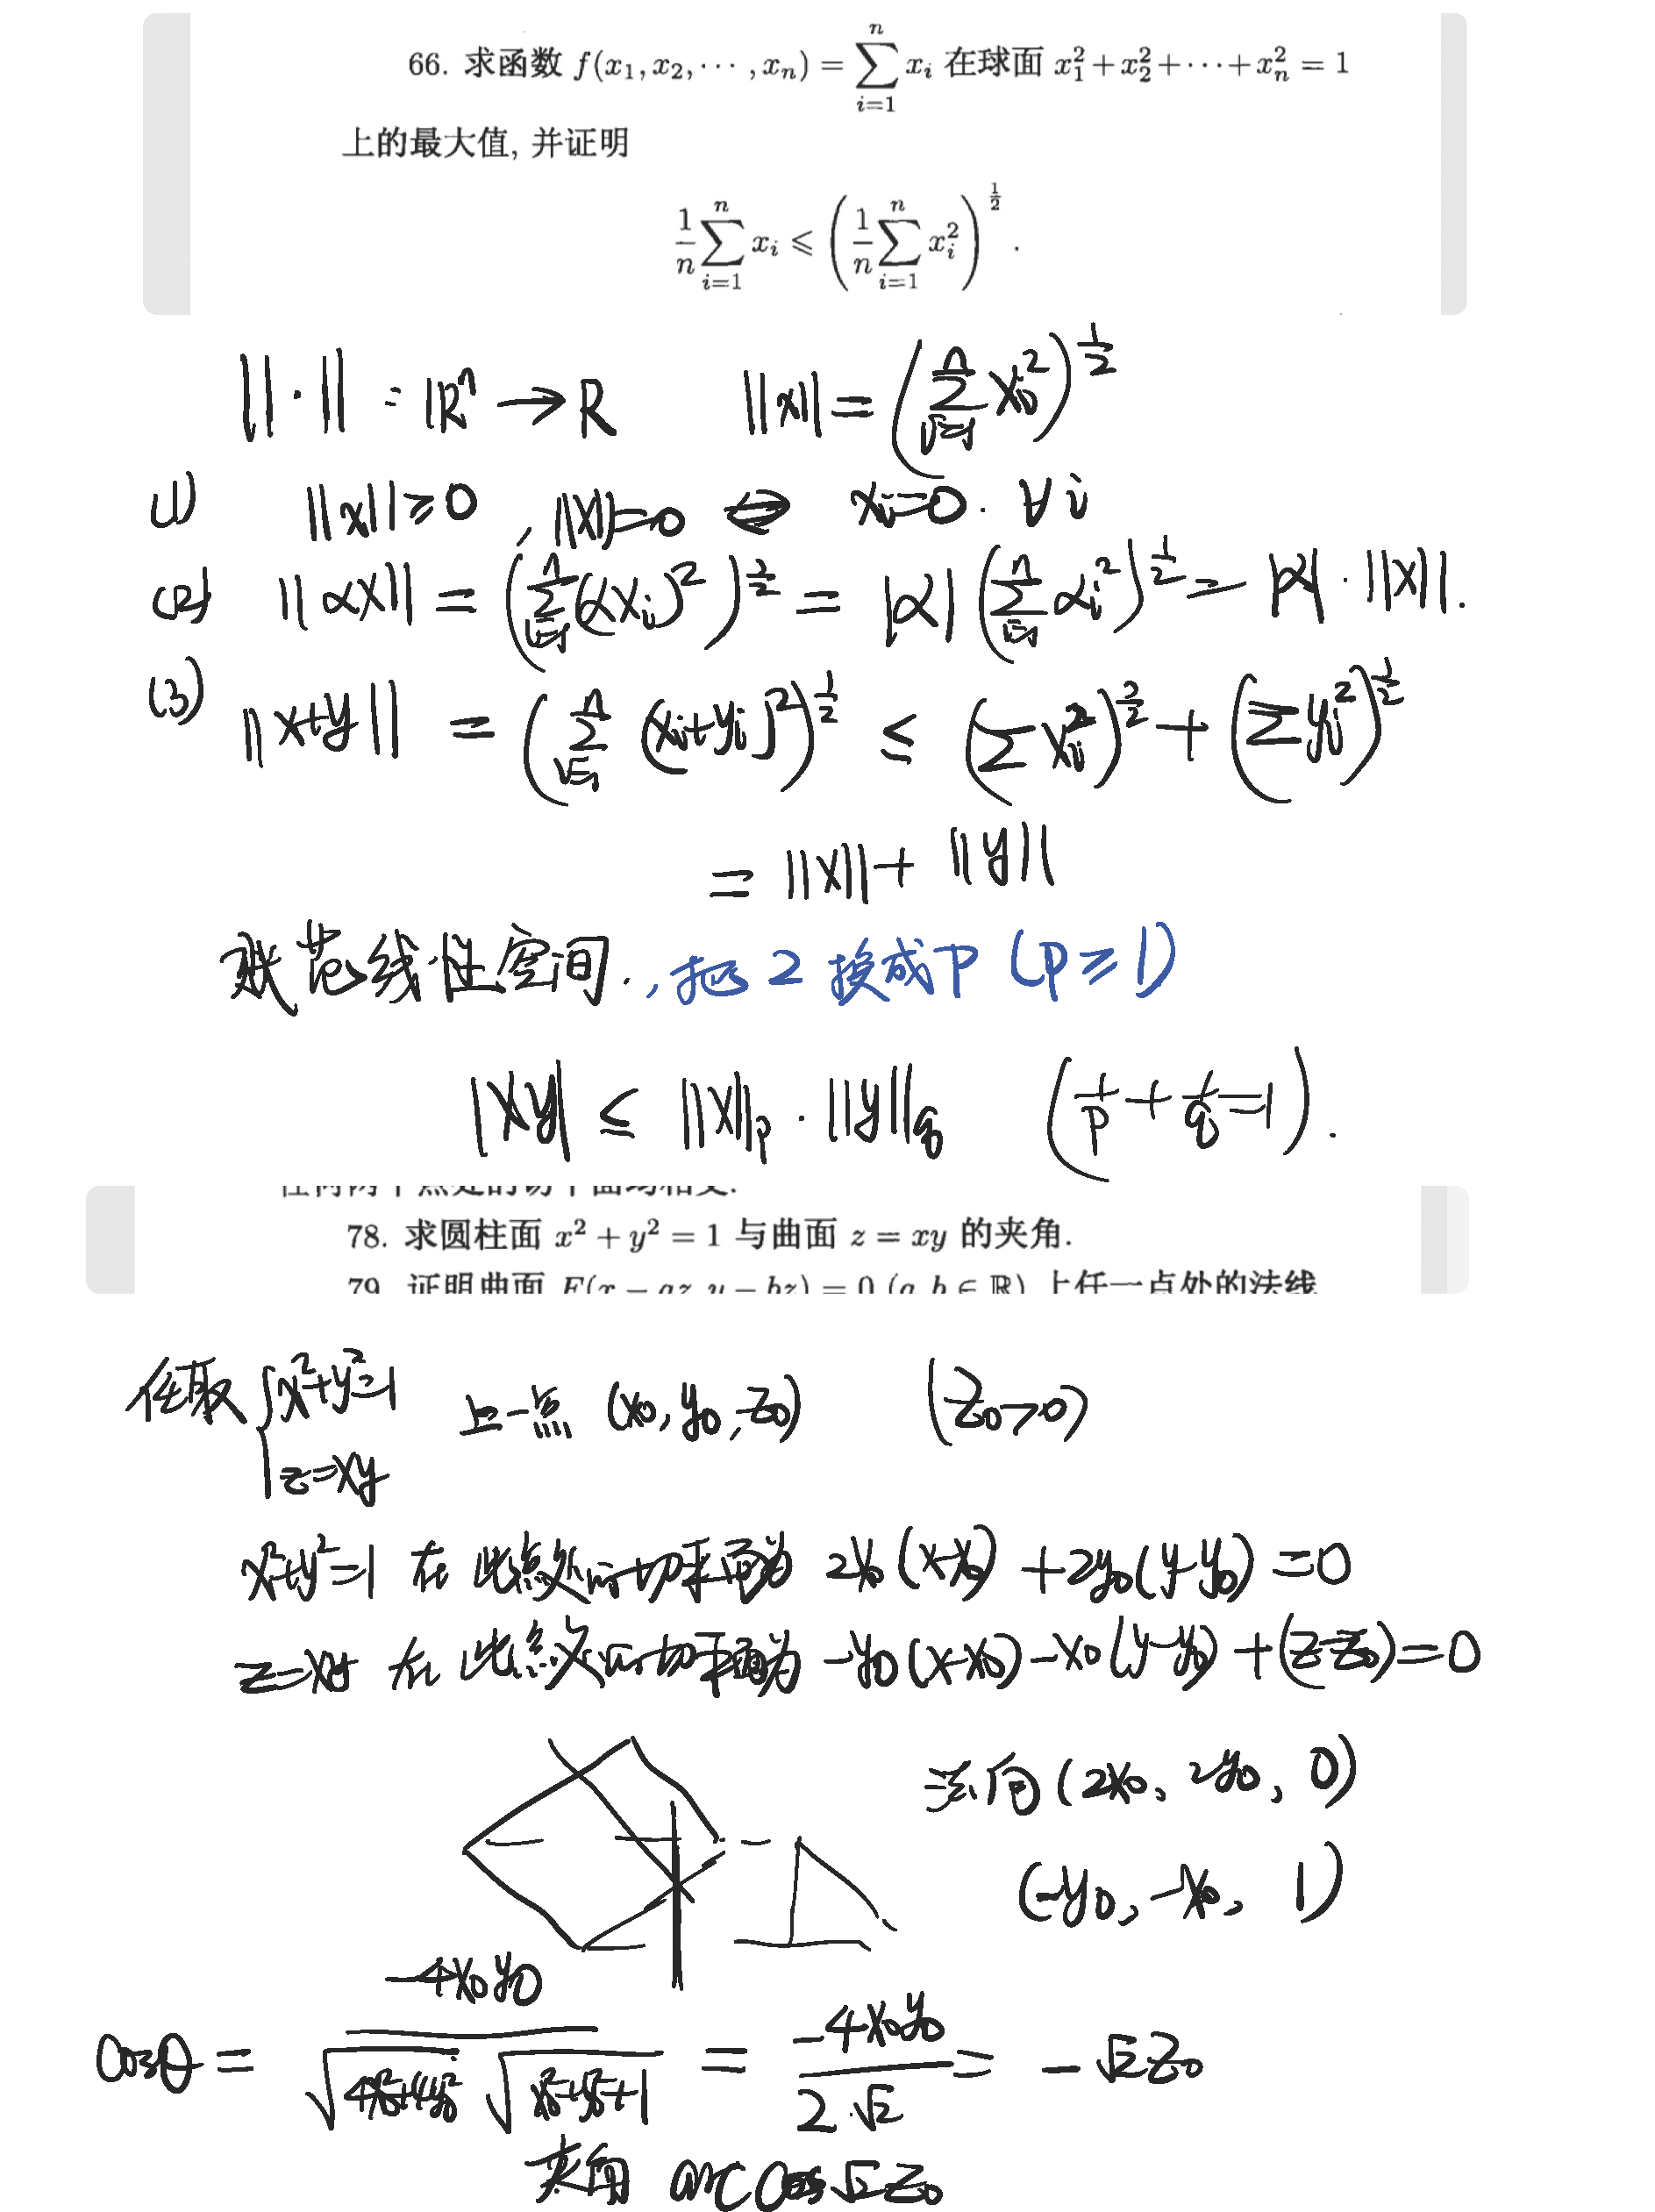 66. 求函数 f(x₁, x₂, ⋯ , xₙ) = ∑_{i=1}^{n} xᵢ 在球面 x₁² + x₂² + ⋯ + xₙ² = 1
上的最大值, 并证明
1/n ∑_{i=1}^{n} xᵢ ⩽ (1/n ∑_{i=1}^{n} xᵢ²)^{1/2} .
||·|| : ℝⁿ → R ||x|| = (∑_{i=1}^{n} xᵢ²)^{1/2}
(1) ||x|| ≥ 0 , ||x||=0 ⇔ xᵢ=0. ∀ i
(2) ||αx|| = (∑_{i=1}^{n} (αxᵢ)²)^{1/2} = |α| (∑_{i=1}^{n} αᵢ²)^{1/2} = |α| · ||x||.
(3) ||x+y|| = (∑_{i=1}^{n} (xᵢ+yᵢ)²)^{1/2} ≤ (∑ xᵢ²)^{1/2} + (∑ yᵢ²)^{1/2}
= ||x|| + ||y||
范线性空间. , 把 2 换成 p (p ≥ 1)
|xy| ≤ ||x||_p · ||y||_q (1/p + 1/q = 1) .
78. 求圆柱面 x² + y² = 1 与曲面 z = xy 的夹角.
79. 证明曲面 F(x − az, y − bz) = 0 (a, b ∈ ℝ) 上任一点处的法线
任取 { x²+y²=1 上一点 (x₀, y₀, z₀) (z₀>0)
z=xy
x²+y²=1 在此点处的切平面为 2x₀(x-x₀) + 2y₀(y-y₀) = 0
z=xy 在此点处的切平面为 -y₀(x-x₀) - x₀(y-y₀) + (z-z₀) = 0
法向 (2x₀, 2y₀, 0)
(-y₀, -x₀, 1)
cosθ = -4x₀y₀ / (√(4x₀²+4y₀²) √(x₀²+y₀²+1)) = -4x₀y₀ / (2·√2) = -√2 z₀
夹角 arccos √2 z₀